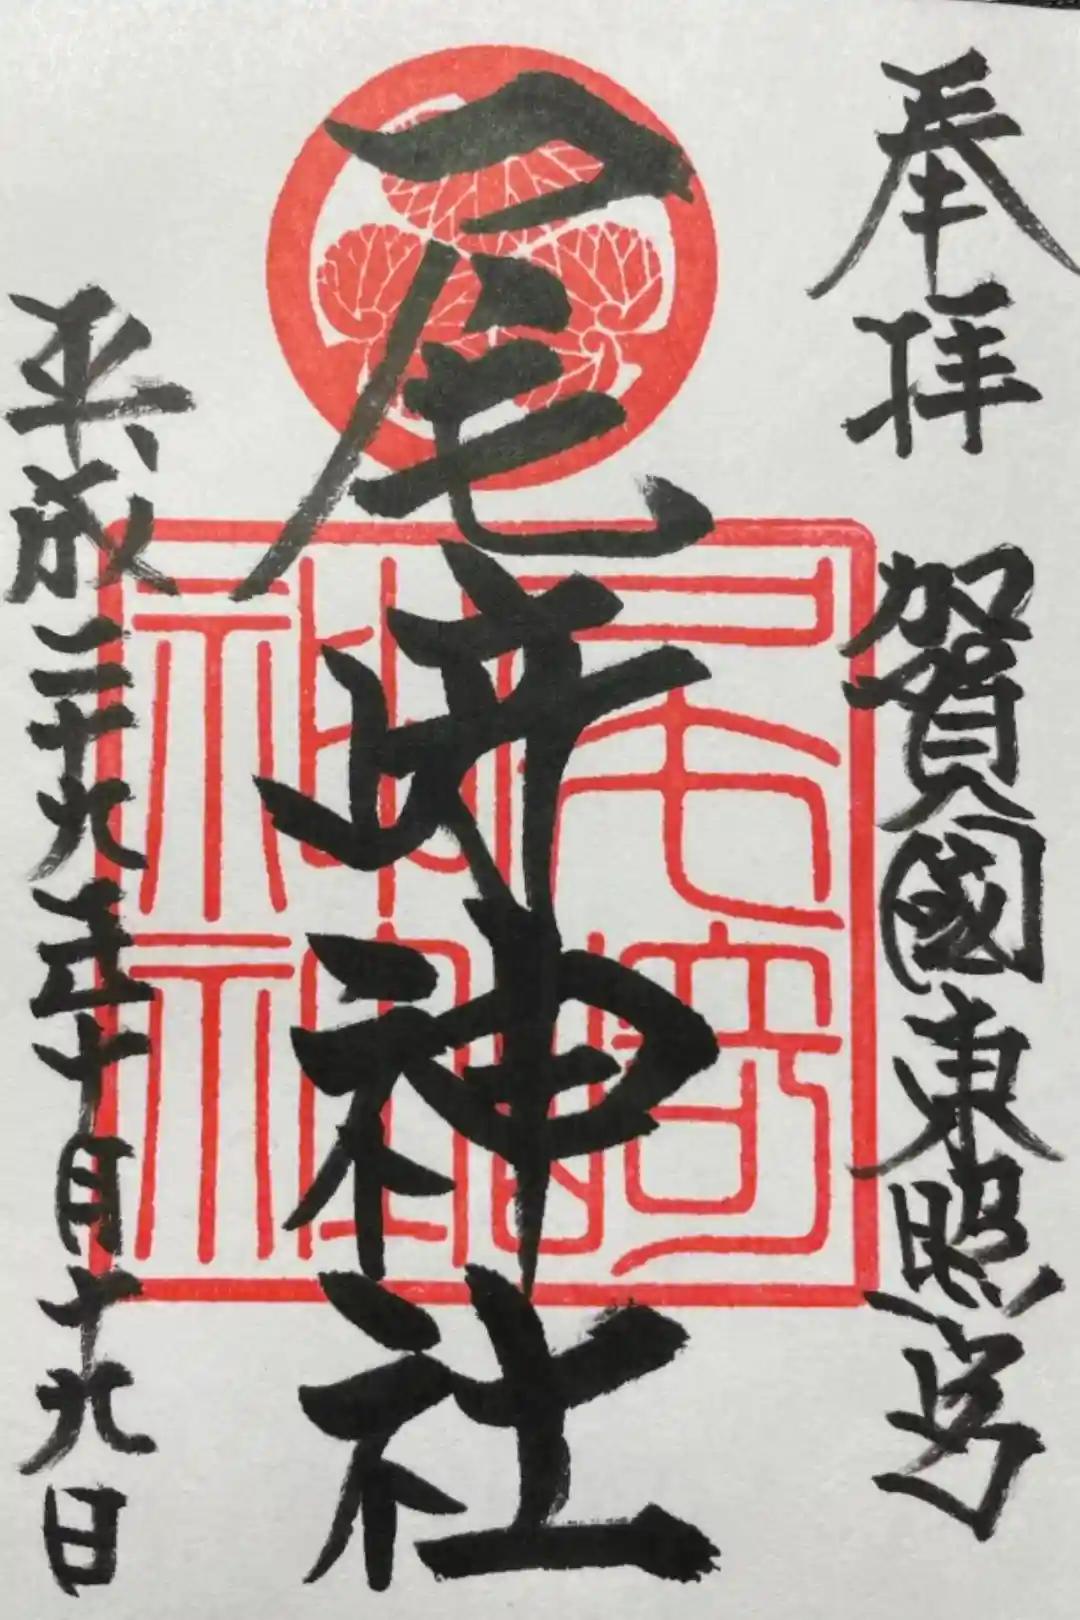 奉拝
加賀國東照宮
尾崎神社
尾崎
神社
平成二十九年十月十九日